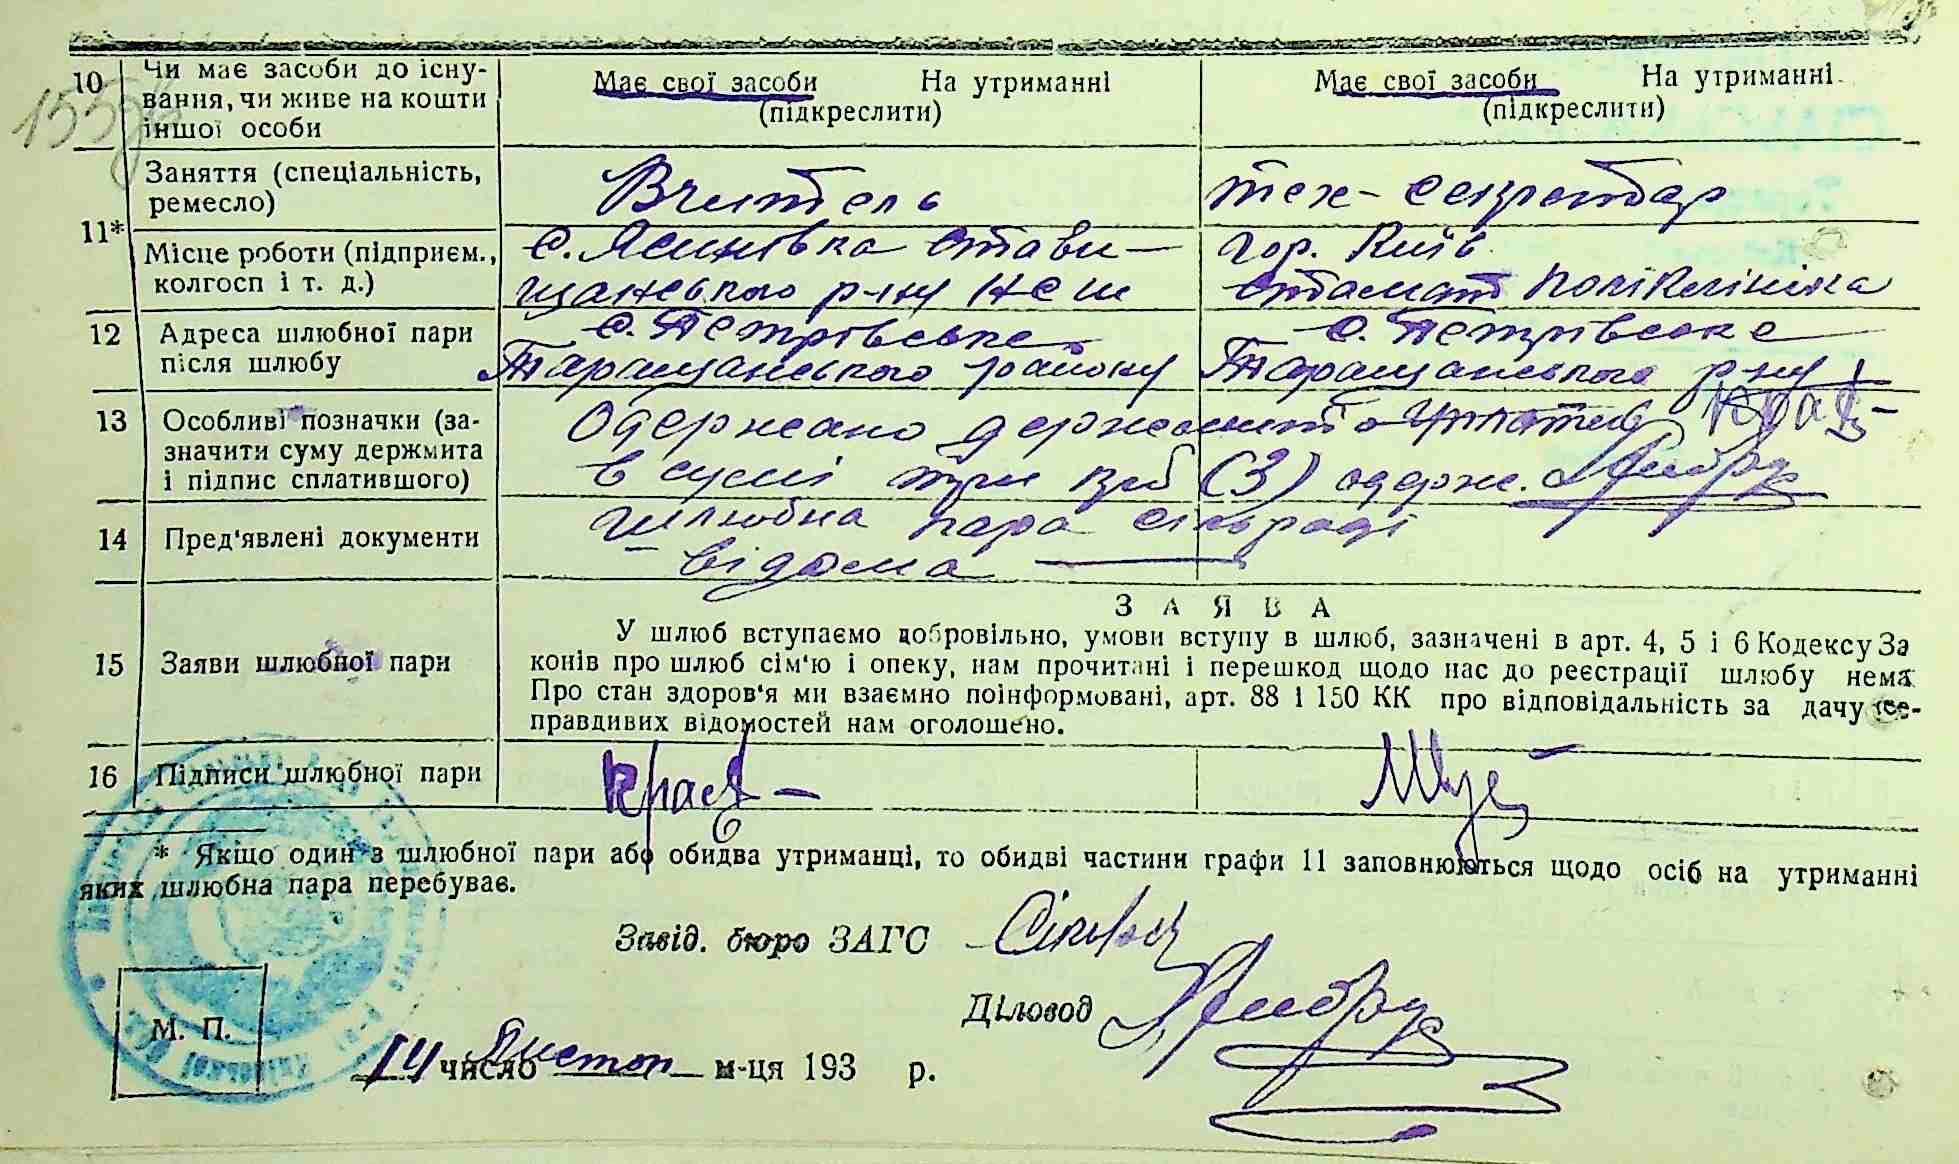 10 Чи має засоби до існу-
вання, чи живе на кошти
іншої особи
Має свої засоби На утриманні
(підкреслити)
Має свої засоби На утриманні
(підкреслити)
11* Заняття (спеціальність,
ремесло)
Вчитель
тех- секретар
Місце роботи (підприєм.,
колгосп і т. д.)
с. Ясинівка Стави-
щанського р-ну НСШ
гор. Київ
стомат поліклініка
12 Адреса шлюбної пари
після шлюбу
с. Петрівське
Таращанського району
с. Петрівське
Таращанського р-ну
13 Особливі позначки (за-
значити суму держмита
і підпис сплатившого)
Одержано держмита
в сумі три крб (3) одерж.
14 Пред'явлені документи
Шлюбна пара сільраді
відома
15 Заяви шлюбної пари
ЗАЯВА
У шлюб вступаємо добровільно, умови вступу в шлюб, зазначені в арт. 4, 5 і 6 Кодексу За
конів про шлюб сім'ю і опеку, нам прочитані і перешкод щодо нас до реєстрації шлюбу нема
Про стан здоров'я ми взаємно поінформовані, арт. 88 і 150 КК про відповідальність за дачу не-
правдивих відомостей нам оголошено.
16 Підписи шлюбної пари
* Якщо один з шлюбної пари або обидва утриманці, то обидві частини графи 11 заповнюються щодо осіб на утриманні
яких шлюбна пара перебуває.
Завід. бюро ЗАГС
Діловод
М. П.
14 число Листоп м-ця 193 р.